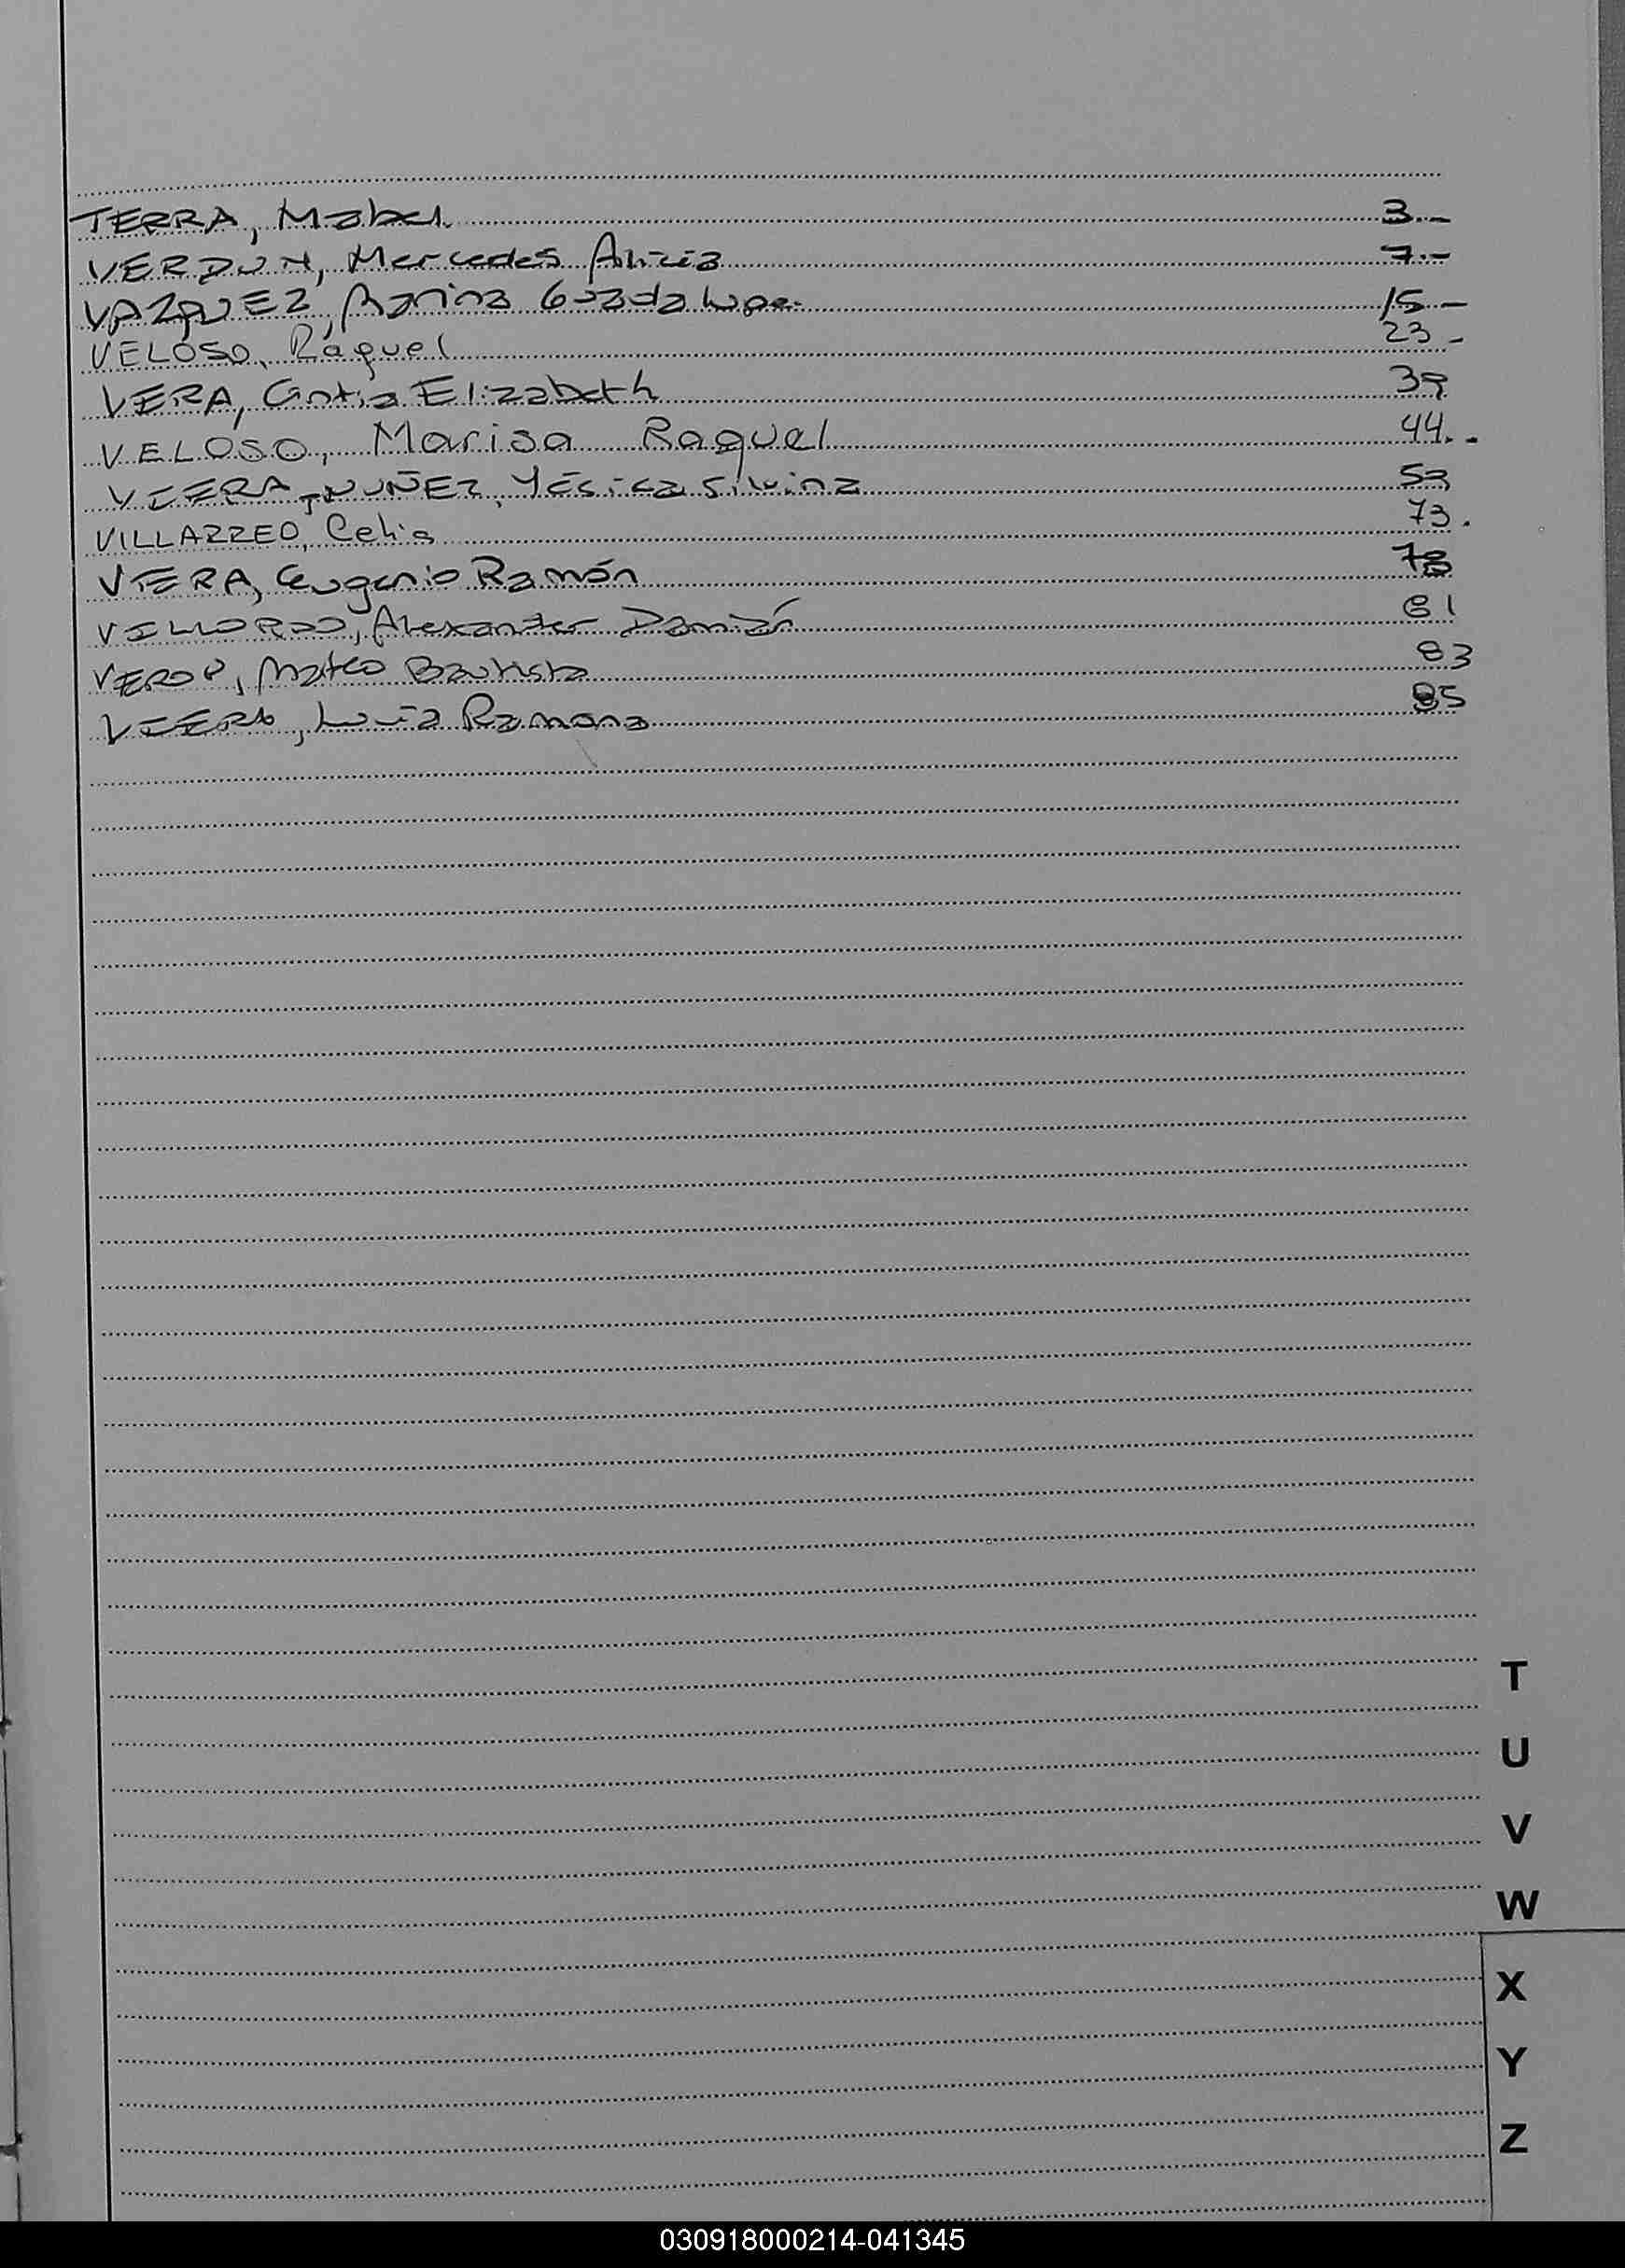 TERRA, Mabel 3.-
VERDUN, Mercedes Alicia 7.-
VAZQUEZ, Marina Guadalupe. 15-
VELOSO, Raquel 23-
VERA, Cintia Elizabeth 39
VELOSO, Marisa Raquel 44.-
VIERA NUÑEZ, Yésica Silvina 59
VILLAZZEO, Celia 73.
VIERA, Eugenio Ramón 78
Alexander Damián 81
Mateo Bautista 83
VIERA, Lucía Ramona 85
T
U
V
W
X
Y
Z
030918000214-041345